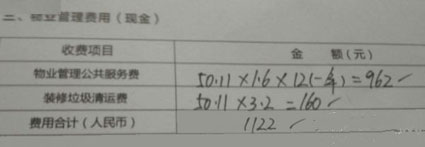 二、物业管理费用（现金）
收费项目 金 额（元）
物业管理公共服务费 50.11×1.6×12(一年)=962✓
装修垃圾清运费 50.11×3.2=160✓
费用合计（人民币） 1122✓